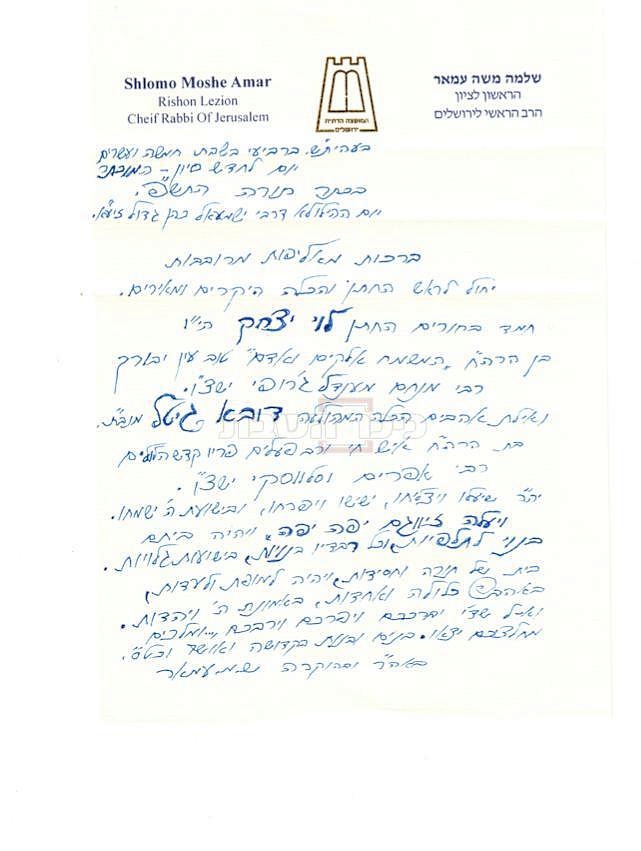 Shlomo Moshe Amar
Rishon Lezion
Cheif Rabbi Of Jerusalem
המועצה הדתית
ירושלים
שלמה משה עמאר
הראשון לציון
הרב הראשי לירושלים
בעהית"ש. ברביעי בשבת חמשה ועשרים
יום לחדש סיון - המוכתר
בכתר תורה התש"פ.
יום ההילולא דרבי ישמעאל כהן גדול זיע"א.
ברכות מאליפות מרובבות
יחול לראש החתן והכלה היקרים ומאירים.
חמד בחורים החתן לוי יצחק הי"ו
בן הרה"ח "המשמח אלקים ואדם" טוב עין יבורך
רבי מנחם מענדל ג'רופי ישצ"ו.
ואילת אהבים הכלה המהוללה דובא גיטל מנב"ת.
בת הרה"ח איש חי ורב פעלים פריו קדש הלולים
רבי אפרים וסלווסקי ישצ"ו.
יה"ר שיעלו ויצליחו, ישישו ויפרחו, ובישועת ה' ישמחו.
ויעלה זיווגם יפה יפה, ויהיה ביתם
בנוי לתלפיות, וכל בישועות גלויות.
בית של תורה וחסידות, ויהיה למופת ולעדות,
באהבה כלולה ואחדות, באמונת ה' ויהדות.
וא-ל שד"י יברככם ויפרכם וירבכם ... ומלכים
מחלציכם יצאו. בנים ובנות בקדושה ואושר וכט"ס.
באה"ר ובהוקרה ש.מ. עמאר